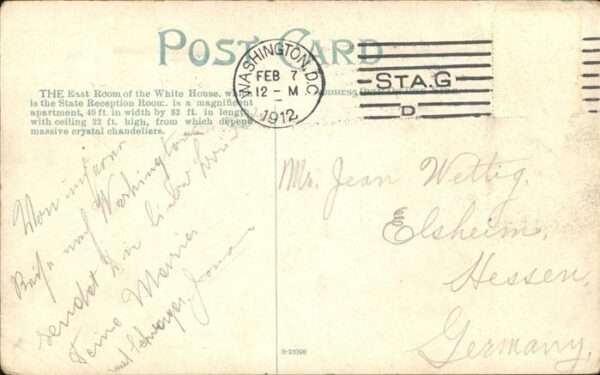 POST CARD
WASHINGTON, D.C.
FEB 7
12-M
1912
STA. G
D
THE East Room of the White House,
is the State Reception Room. is a magnificent
apartment, 40 ft. in width by 82 ft. in length,
with ceiling 22 ft. high, from which depend
massive crystal chandeliers.
Von
Reise nach Washington
sendet
Deine Marie
und Schwager
Mr. Jean Wettig.
Elsheim,
Hessen,
Germany,